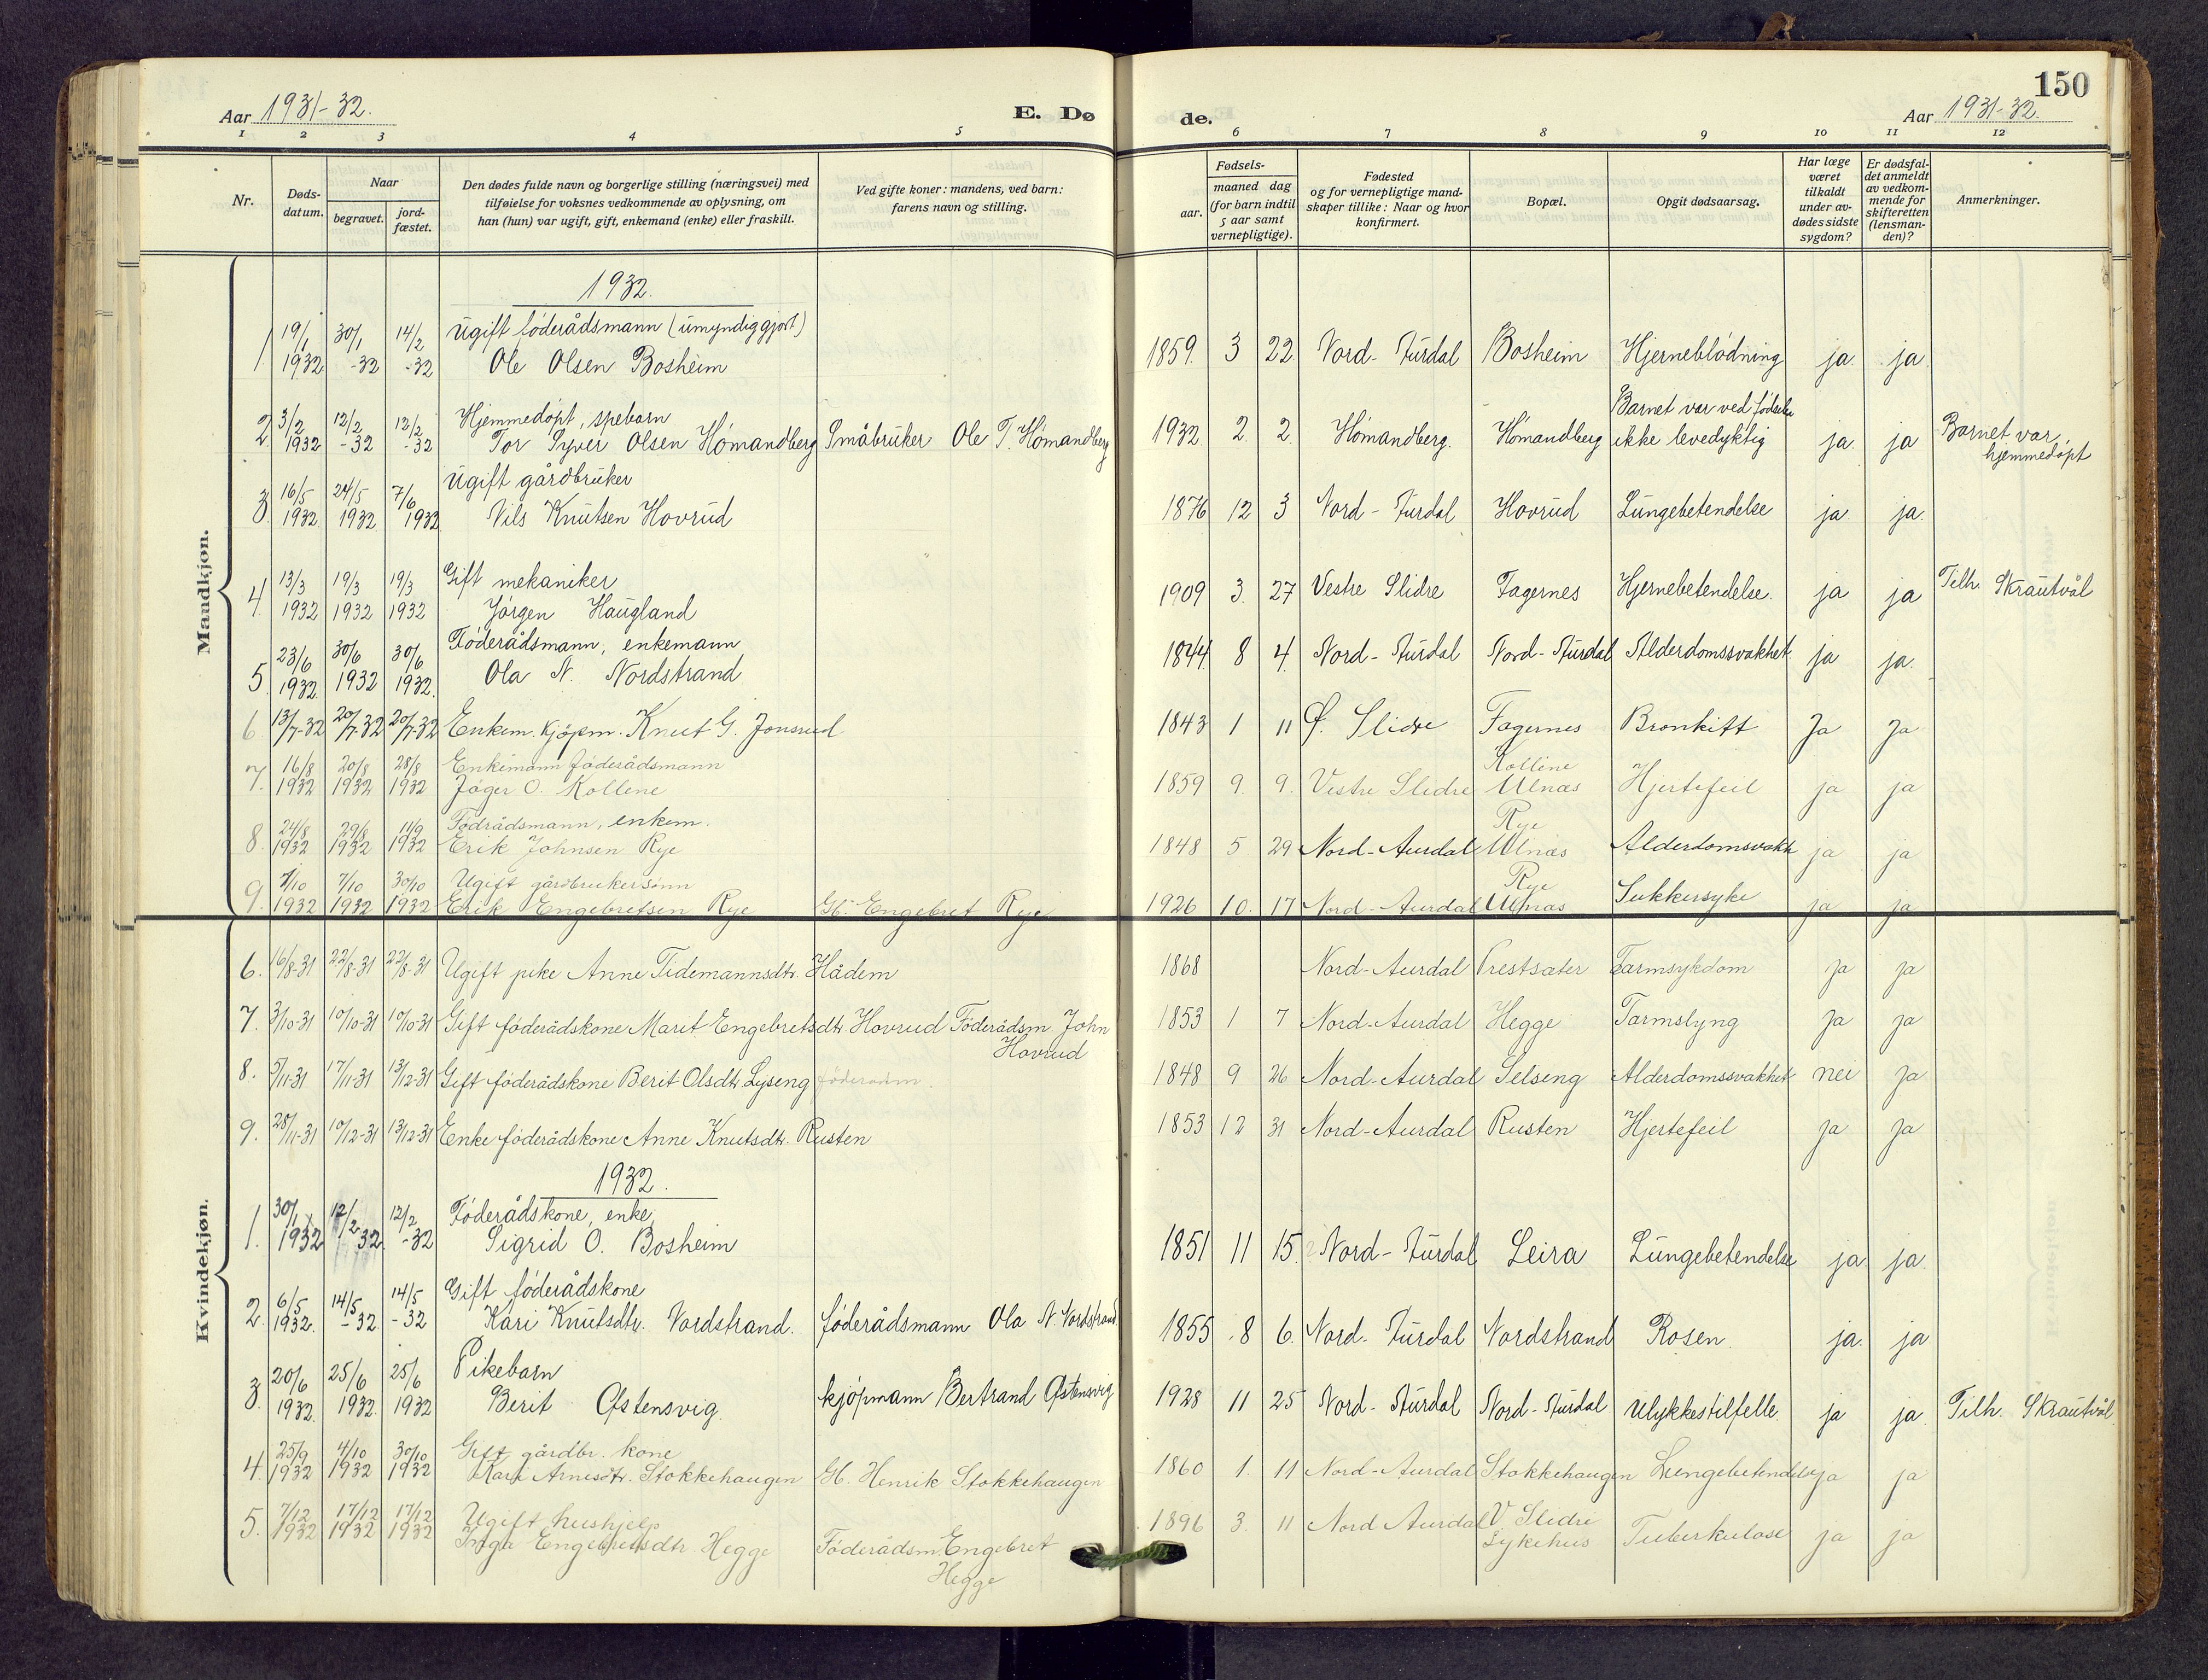 150
Aar 1931-32.
E. Dø
de.
Aar 1931-32.
1 2 3 4 5 6 7 8 9 10 11 12
Nr.
Døds-
datum.
Naar
begravet.
jord-
fæstet.
Den dødes fulde navn og borgerlige stilling (næringsvei) med
tilføielse for voksnes vedkommende av oplysning, om
han (hun) var ugift, gift, enkemand (enke) eller fraskilt.
Ved gifte koner: mandens, ved barn:
farens navn og stilling.
Fødsels-
aar.
maaned dag
(for barn indtil
5 aar samt
vernepligtige).
Fødested
og for vernepligtige mand-
skaper tillike: Naar og hvor
konfirmert.
Bopæl.
Opgit dødsaarsag.
Har læge
været
tilkaldt
under av-
dødes sidste
sygdom?
Er dødsfal-
det anmeldt
av vedkom-
mende for
skifteretten
(lensman-
den)?
Anmerkninger.
Mandkjøn.
1932.
1 19/1 30/1 14/2 Ugift føderådsmann (umyndiggjort)
1932 -32 -32 Ole Olsen Bosheim 1859. 3 22 Nord-Aurdal Bosheim Hjerneblødning ja. ja
2. 3/2 12/2 12/2 Hjemmedøpt, spebarn Barnet var ved fødselen
1932 -32 -32 Tor Syver Olsen Hømandberg Småbruker Ole T. Hømandberg 1932. 2. 2. Hømandberg. Hømandberg ikke levedyktig ja. ja Barnet var hjemmedøpt
3. 16/5 24/5 7/6 Ugift gårdbruker
1932 1932 1932 Nils Knutsen Hovrud 1876 12 3 Nord-Aurdal Hovrud Lungebetendelse ja. ja.
4 13/3 19/3 19/3 Gift mekaniker
1932 1932 1932 Jørgen Haugland 1909 3. 27 Vestre Slidre Fagernes Hjernebetendelse. ja ja Tilh. Skrautvål
5 23/6 30/6 30/6 Føderådsmann, enkemann
1932. 1932 1932. Ola N. Nordstrand 1844 8 4. Nord-Aurdal Nord-Aurdal Alderdomssvakhet ja ja.
6 13/7-32 20/7-32 20/7-32 Enkem. kjøpm. Knut G. Jonsrud 1843 1 11 Ø. Slidre Fagernes Bronkitt Ja Ja
7. 16/8 20/8 28/8 Enkemann føderådsmann Kollene
1932 1932 1932 Jøger O. Kollene 1859 9. 9. Vestre Slidre Ulnæs Hjertefeil ja ja
8. 24/8 29/8 11/9 Fødrådsmann, enkem. Rye
1932 1932 1932 Erik Johnsen Rye 1848 5 29 Nord-Aurdal Ulnæs Alderdomsvakh ja ja
9. 7/10 30/10 Ugift gårdbrukersønn Rye
1932 1932 1932 Erik Engebretsen Rye Gb. Engebret Rye 1926 10. 17 Nord-Aurdal Ulnæs Sukkersyke ja ja
Kvindekjøn.
6. 16/8-31 22/8-31 22/8-31 Ugift pike Anne Tidemannsdtr. Hådem 1868 Nord-Aurdal Prestsæter Tarmsykdom Ja Ja
7. 3/10-31 10/10-31 10/10-31 Gift føderådskone Marit Engebretsdtr. Hovrud Føderådsm. John
Hovrud 1853 1 7 Nord-Aurdal Hegge Tarmslyng Ja Ja
8. 5/11-31 17/11-31 13/12-31 Gift føderådskone Berit Olsdtr. Lyseng føderådsm. 1848 9 26 Nord-Aurdal Selseng Alderdomssvakhet nei Ja
9. 28/11-31 10/12-31 13/12-31 Enke føderådskone Anne Knutsdtr. Rusten 1853 12 31 Nord-Aurdal Rusten Hjertefeil Ja Ja
1932.
1. 30/1 12/2 12/2 Føderådskone, enke,
1932 -32 -32 Sigrid O. Bosheim 1851 11 15. Nord-Aurdal Leira Lungebetendelse ja ja.
2. 6/5 14/5 14/5 Gift føderådskone
1932. -32 -32 Kari Knutsdtr. Nordstrand. føderådsmann Ola N. Nordstrand 1855 8 6. Nord-Aurdal Nordstrand Rosen. ja. ja
3. 20/6 25/6 25/6 Pikebarn
1932. 1932 1932 Berit Østensvig. kjøpmann Bertrand Østensvig 1928 11 25 Nord-Aurdal Nord-Aurdal Ulykkestilfelle ja ja. Tilh. Skrautvål
4. 25/9 4/10 30/10 Gift gårdbr. kone
1932 1932 1932 Kari Arnesdtr. Stokkehaugen Gb. Henrik Stokkehaugen 1860 1. 11 Nord-Aurdal Stokkehaugen Lungebetendelse ja ja
5. 7/12 17/12 17/12 Ugift hushjelp V. Slidre
1932 1932 1932 Inga Engebretsdtr. Hegge Føderådsm. Engebret
Hegge 1896 3. 11 Nord Aurdal Sykehus Tuberkulose ja ja